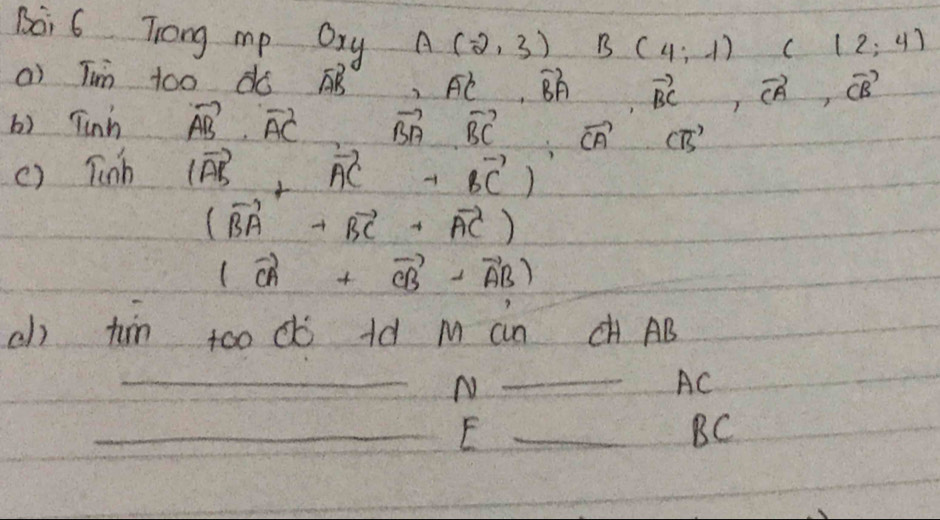 Bài 6 Trong mp Oxy A (-2, 3) B (4; -1) C (2; 4)
a) Tìm toạ độ $\overrightarrow{AB}$, $\overrightarrow{AC}$, $\overrightarrow{BA}$, $\overrightarrow{BC}$, $\overrightarrow{CA}$, $\overrightarrow{CB}$
b) Tính $\overrightarrow{AB}$.$\overrightarrow{AC}$; $\overrightarrow{BA}$ $\overrightarrow{BC}$; $\overrightarrow{CA}$ $\overrightarrow{CB}$
c) Tính ($\overrightarrow{AB}$ + $\overrightarrow{AC}$ + $\overrightarrow{BC}$)
($\overrightarrow{BA}$ + $\overrightarrow{BC}$ + $\overrightarrow{AC}$)
($\overrightarrow{CA}$ + $\overrightarrow{CB}$ + $\overrightarrow{AB}$)
d) tìm toạ độ tđ M của AB
N AC
E BC